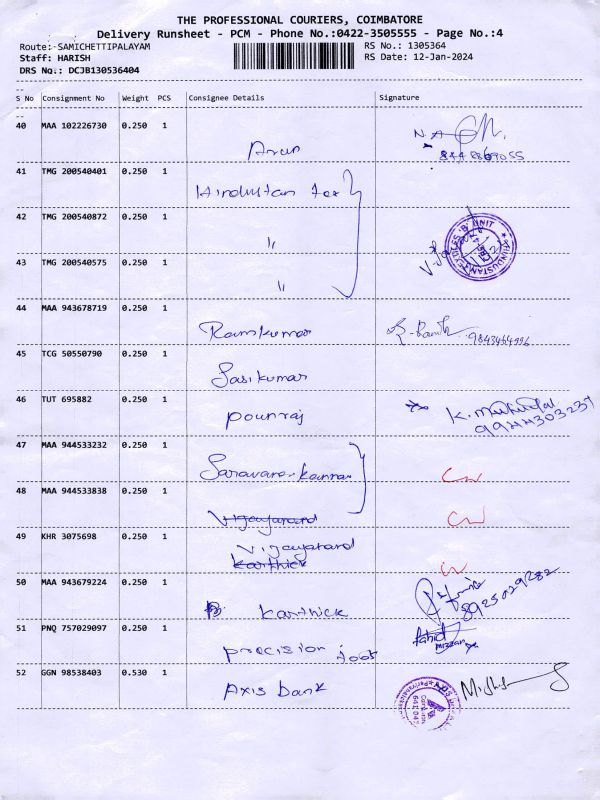 THE PROFESSIONAL COURIERS, COIMBATORE
Delivery Runsheet - PCM - Phone No.:0422-3505555 - Page No.:4
Route:-SAMICHETTIPALAYAM RS No.: 1305364
Staff: HARISH RS Date: 12-Jan-2024
DRS No.: DCJB130536404
S No Consignment No Weight PCS Consignee Details Signature
40 MAA 102226730 0.250 1
Arun
41 TMG 200540401 0.250 1
Hindustan Tex
42 TMG 200540872 0.250 1
"
43 TMG 200540575 0.250 1
"
44 MAA 943678719 0.250 1
Ramkumar
45 TCG 50550790 0.250 1
Sasikumar
46 TUT 695882 0.250 1
pounraj
9944303237
47 MAA 944533232 0.250 1
Saravana kannan
48 MAA 944533838 0.250 1
Vijayanand
49 KHR 3075698 0.250 1
Vijayanand
Karthick
50 MAA 943679224 0.250 1
Karthick
8925029282
51 PNQ 757029097 0.250 1
precision
52 GGN 98538403 0.530 1
Axis bank